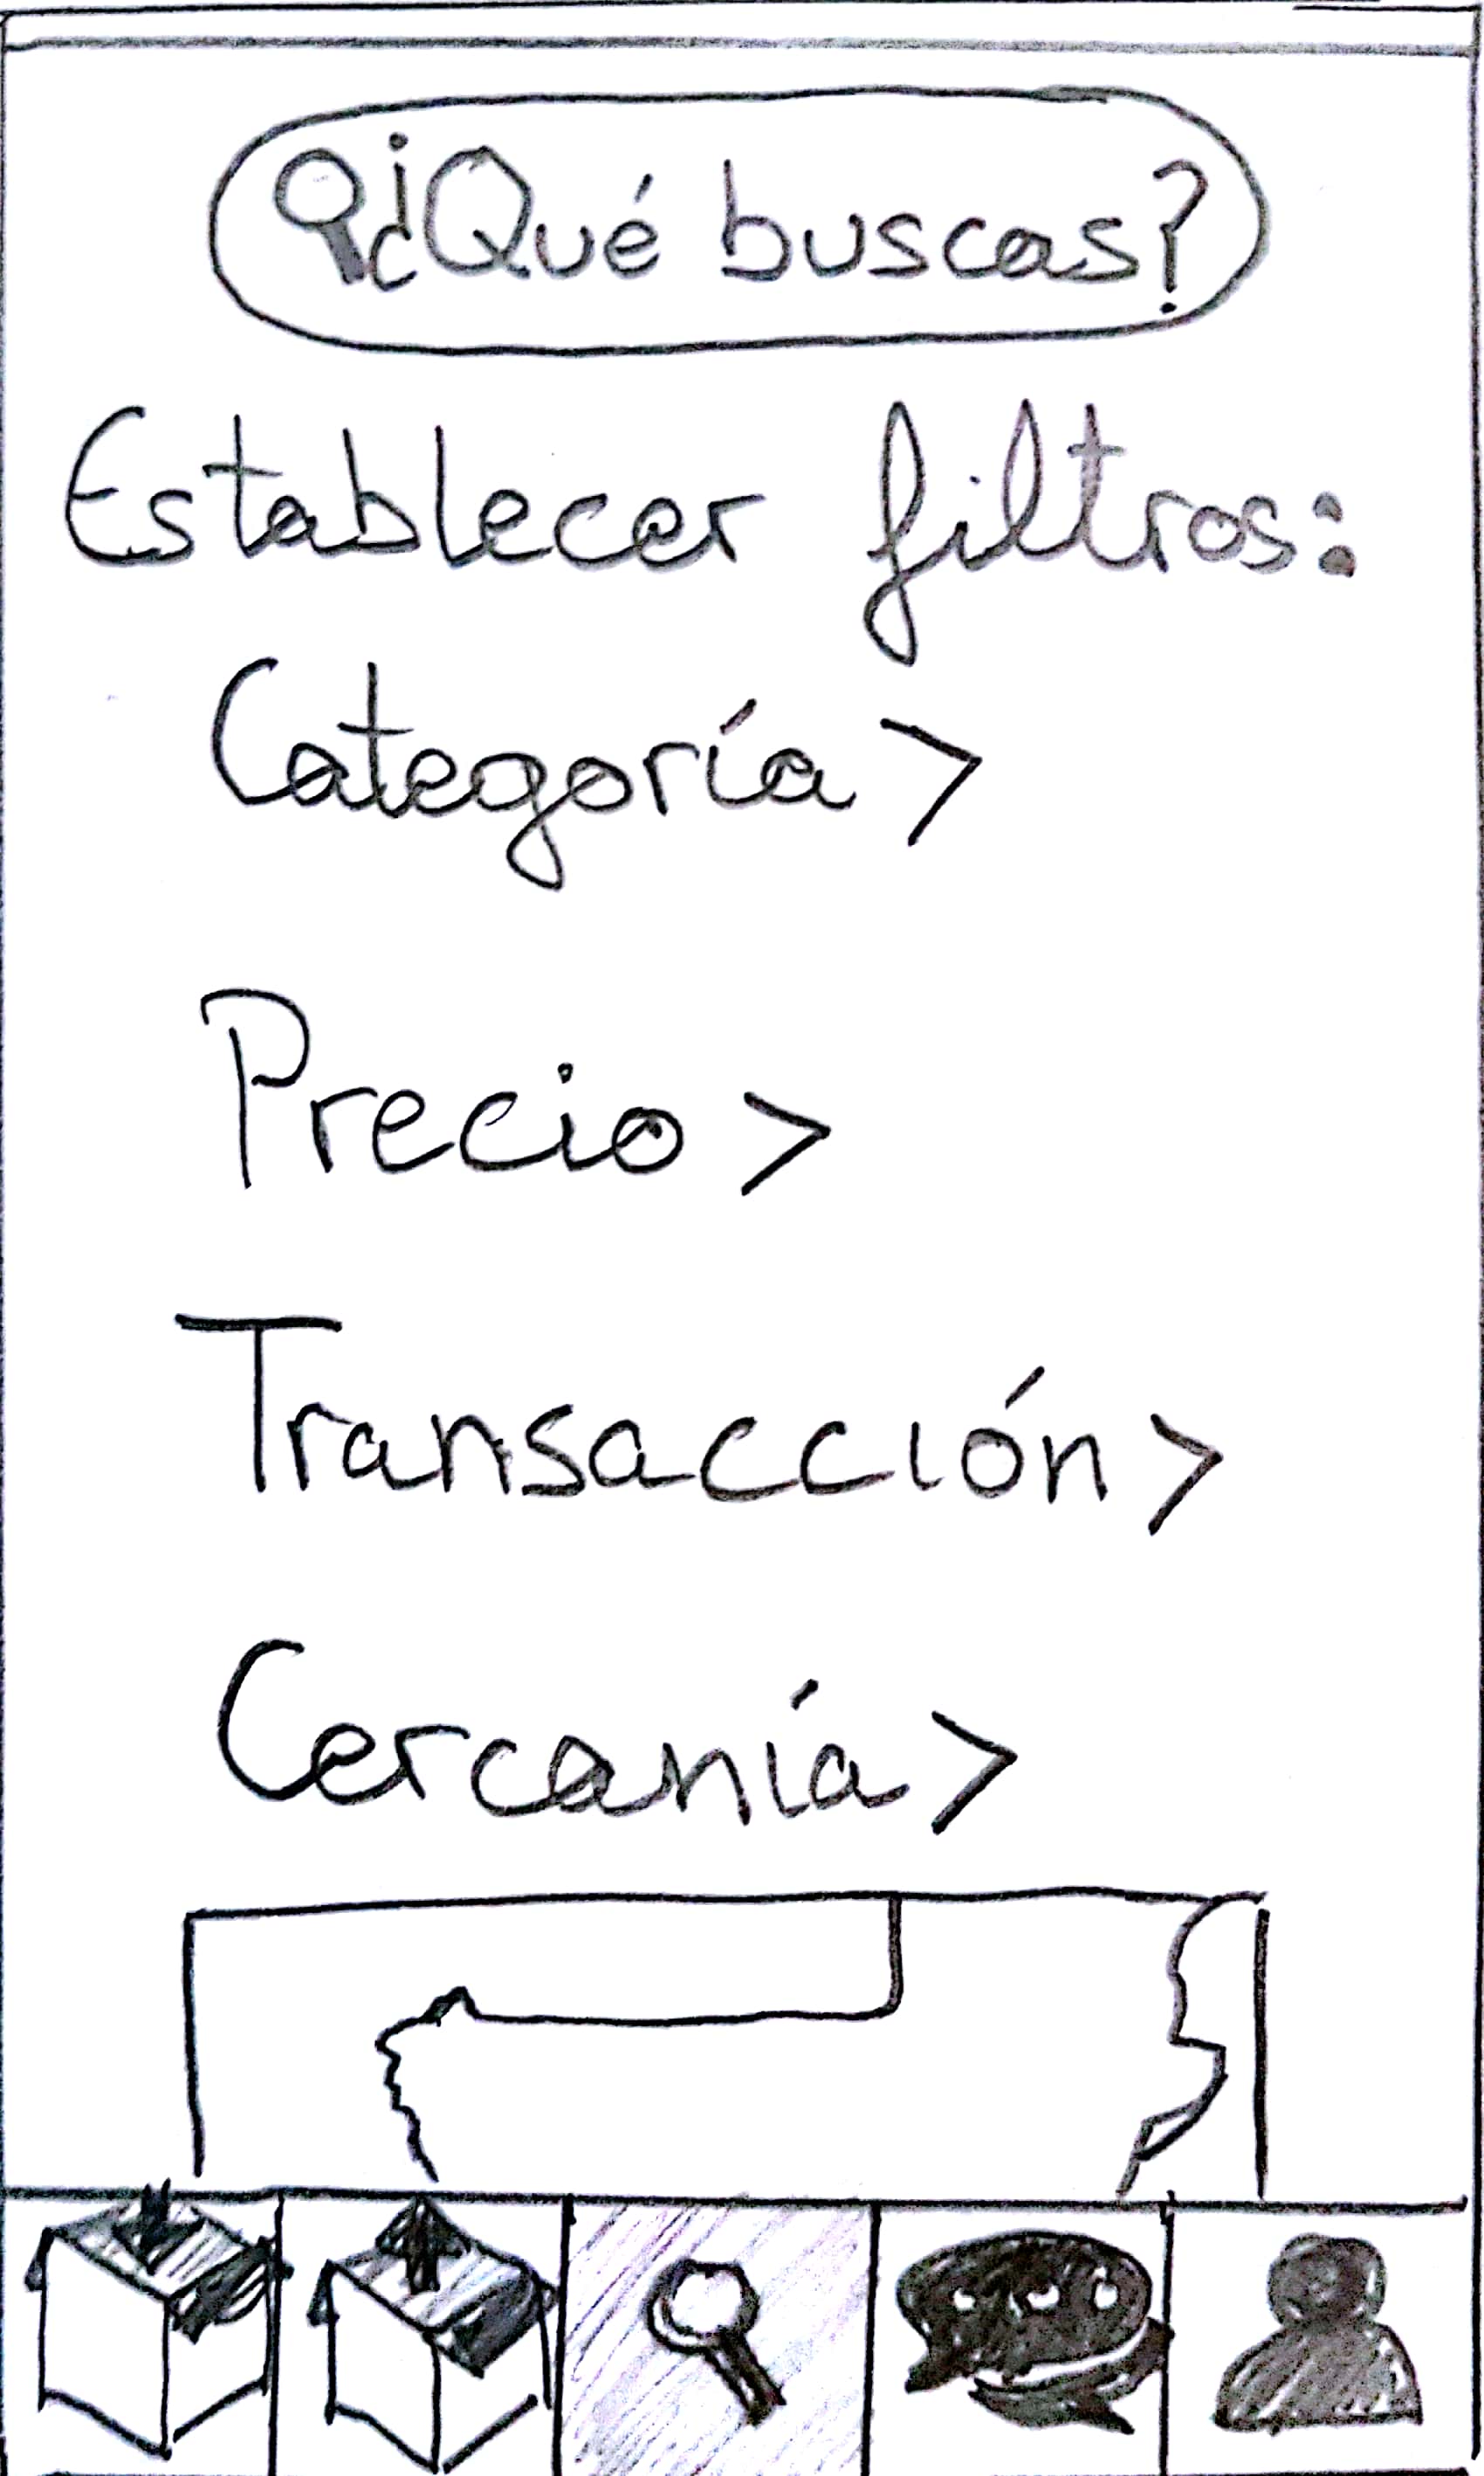 ¿Qué buscas?
Establecer filtros:
Categoría >
Precio >
Transacción >
Cercanía >